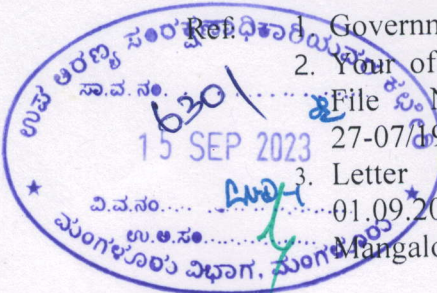 Ref: 1. Governm
2. Your of
File N
27-07/19
3. Letter
01.09.20
Mangalo
ಉಪ ಅರಣ್ಯ ಸಂರಕ್ಷಣಾಧಿಕಾರಿಯವರ
ಸಾ.ವ. ನಂ.
6301
15 SEP 2023
ವಿ.ವ.ನಂ.
ಉ.ಅ.ಸಂ
ಮಂಗಳೂರು ವಿಭಾಗ, ಮಂಗಳೂರು